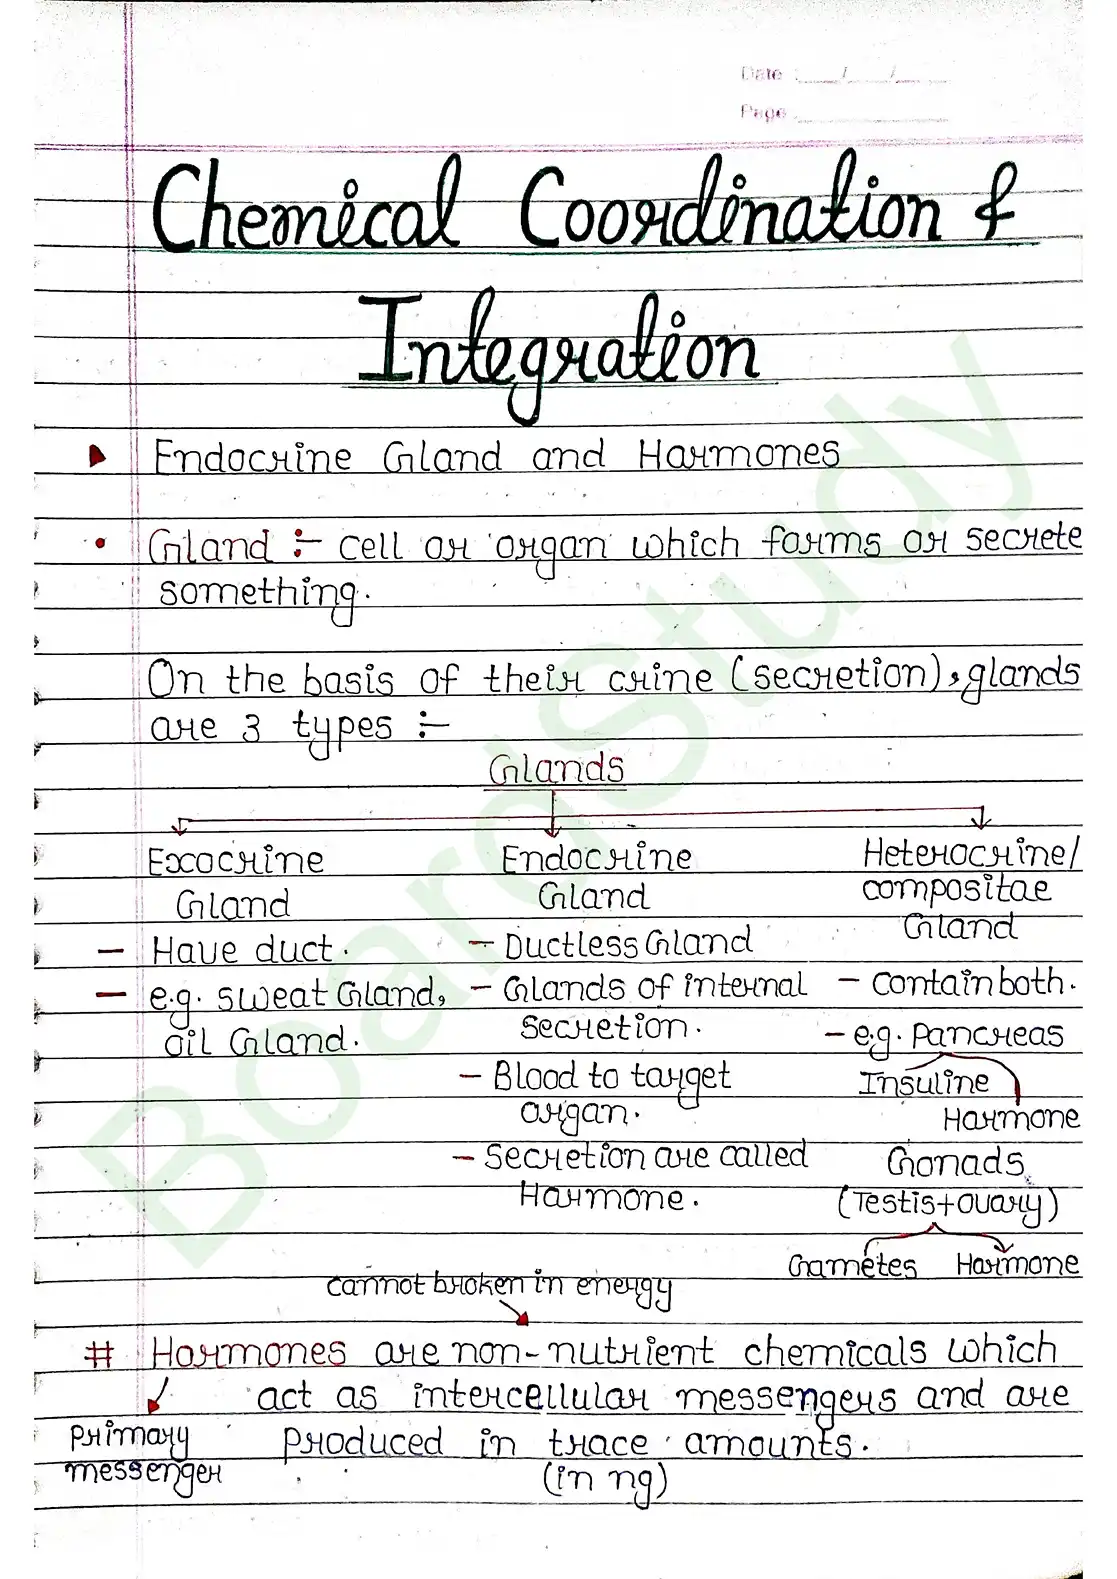 Date : ___/___/___
Page ___
Chemical Coordination &
Integration
Endocrine Gland and Hormones
• Gland :- cell or organ which forms or secrete
something.
On the basis of their crine (secretion), glands
are 3 types :-
Glands
Exocrine
Gland
- Have duct.
- e.g. sweat Gland,
oil Gland.
Endocrine
Gland
- Ductless Gland
- Glands of internal
secretion.
- Blood to target
organ.
- Secretion are called
Harmone.
Heterocrine/
compositae
Gland
- Contain both.
- e.g. Pancreas
Insuline
Harmone
Gonads
(Testis+ovary)
Gametes Harmone
cannot broken in energy
# Hormones are non-nutrient chemicals which
act as intercellular messengers and are
produced in trace amounts.
(in ng)
Primary
messenger
BoardStudy